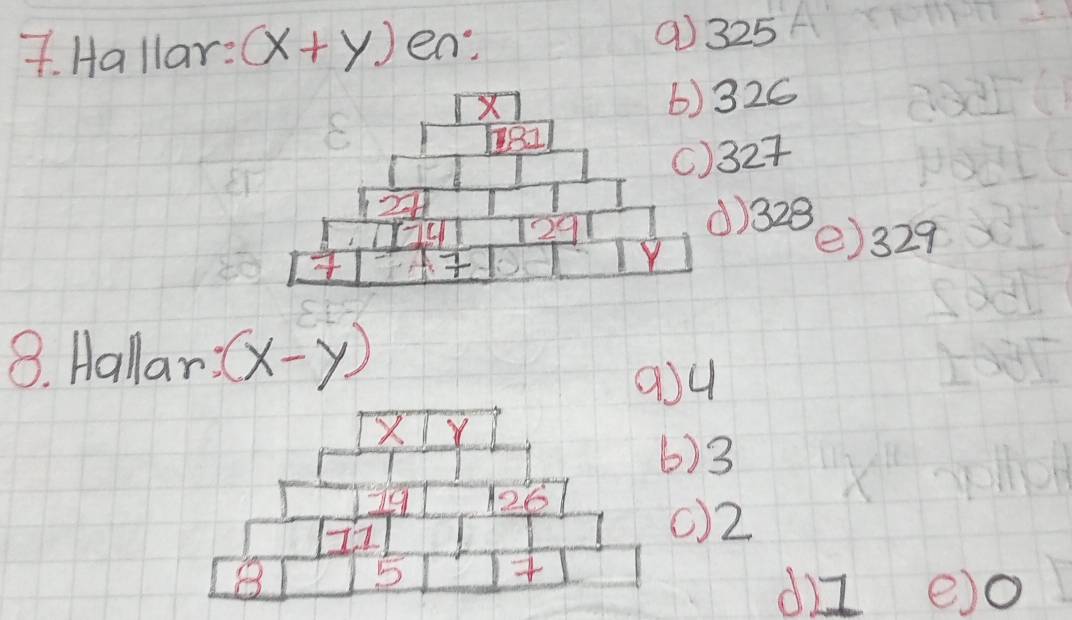 7. Hallar: (x + y) en:
a) 325
b) 326
c) 327
d) 328
e) 329
X
181
27
14 29
7 7 Y
8. Hallar: (x - y)
a) 4
b) 3
c) 2
d) 1
e) 0
X Y
19 26
11
8 5 7